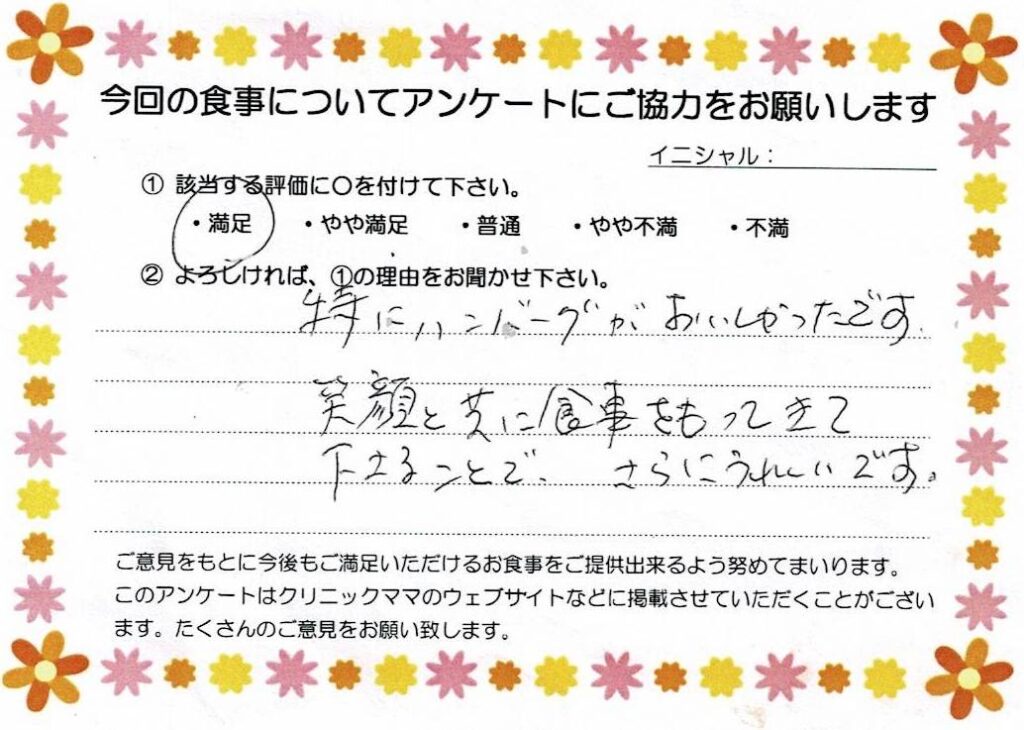 今回の食事についてアンケートにご協力をお願いします
イニシャル：
① 該当する評価に○を付けて下さい。
・満足 ・やや満足 ・普通 ・やや不満 ・不満
② よろしければ、①の理由をお聞かせ下さい。
特にハンバーグがおいしかったです。
笑顔と共に食事をもってきて
下さることで、さらにうれしいです。
ご意見をもとに今後もご満足いただけるお食事をご提供出来るよう努めてまいります。
このアンケートはクリニックママのウェブサイトなどに掲載させていただくことがござい
ます。たくさんのご意見をお願い致します。